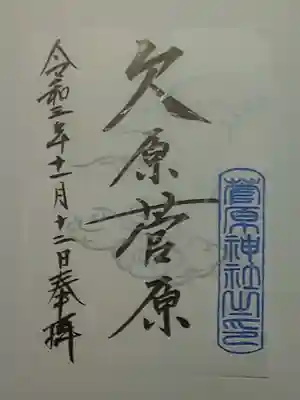 菅原神社之印
久原菅原
令和三年十一月十二日奉拝